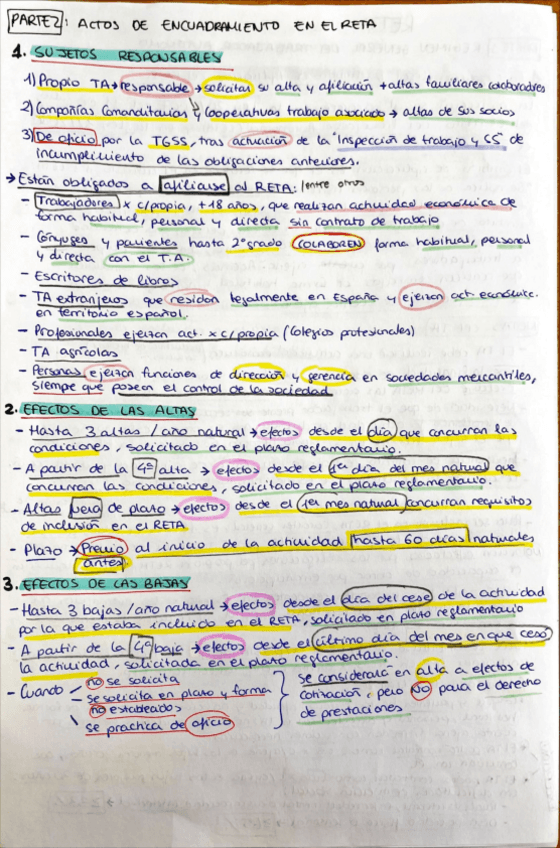 PARTE 2: ACTOS DE ENCUADRAMIENTO EN EL RETA
1. SUJETOS RESPONSABLES
1) Propio TA → responsable → solicitar su alta y afiliación + altas familiares colaboradores
2) Compañías Comanditarias y Cooperativas trabajo asociado → altas de sus socios
3) De oficio por la TGSS, tras actuación de la "Inspección de trabajo y SS" de
incumplimiento de las obligaciones anteriores.
→ Están obligados a afiliarse al RETA: (entre otros
- Trabajadores x c/propia, +18 años, que realizan actividad económica de
forma habitual, personal y directa sin contrato de trabajo
- Cónyuges y parientes hasta 2º grado COLABOREN forma habitual, personal
y directa con el T.A.
- Escritores de libros
- TA extranjeros que residan legalmente en España y ejerzan act. económic.
en territorio español.
- Profesionales ejerzan act. x c/propia (Colegios profesionales)
- TA agrícolas
- Personas ejerzan funciones de dirección y gerencia en sociedades mercantiles,
siempre que posean el control de la sociedad
2. EFECTOS DE LAS ALTAS
- Hasta 3 altas / año natural → efectos desde el día que concurran las
condiciones, solicitado en el plazo reglamentario.
- A partir de la 4ª alta → efectos desde el 1er día del mes natural que
concurran las condiciones, solicitado en el plazo reglamentario.
- Altas fuera de plazo → efectos desde el 1er mes natural concurran requisitos
de inclusión en el RETA
- Plazo → Previo al inicio de la actividad hasta 60 días naturales
antes
3. EFECTOS DE LAS BAJAS
- Hasta 3 bajas / año natural → efectos desde el día del cese de la actividad
por la que estaba incluido en el RETA, solicitado en plazo reglamentario
- A partir de la 4ª baja → efectos desde el último día del mes en que cesó
la actividad, solicitada en el plazo reglamentario.
- Cuando
no se solicita
se solicita en plazo y forma
no establecidos
se practica de oficio
se considerará en alta a efectos de
cotización, pero NO para el derecho
de prestaciones